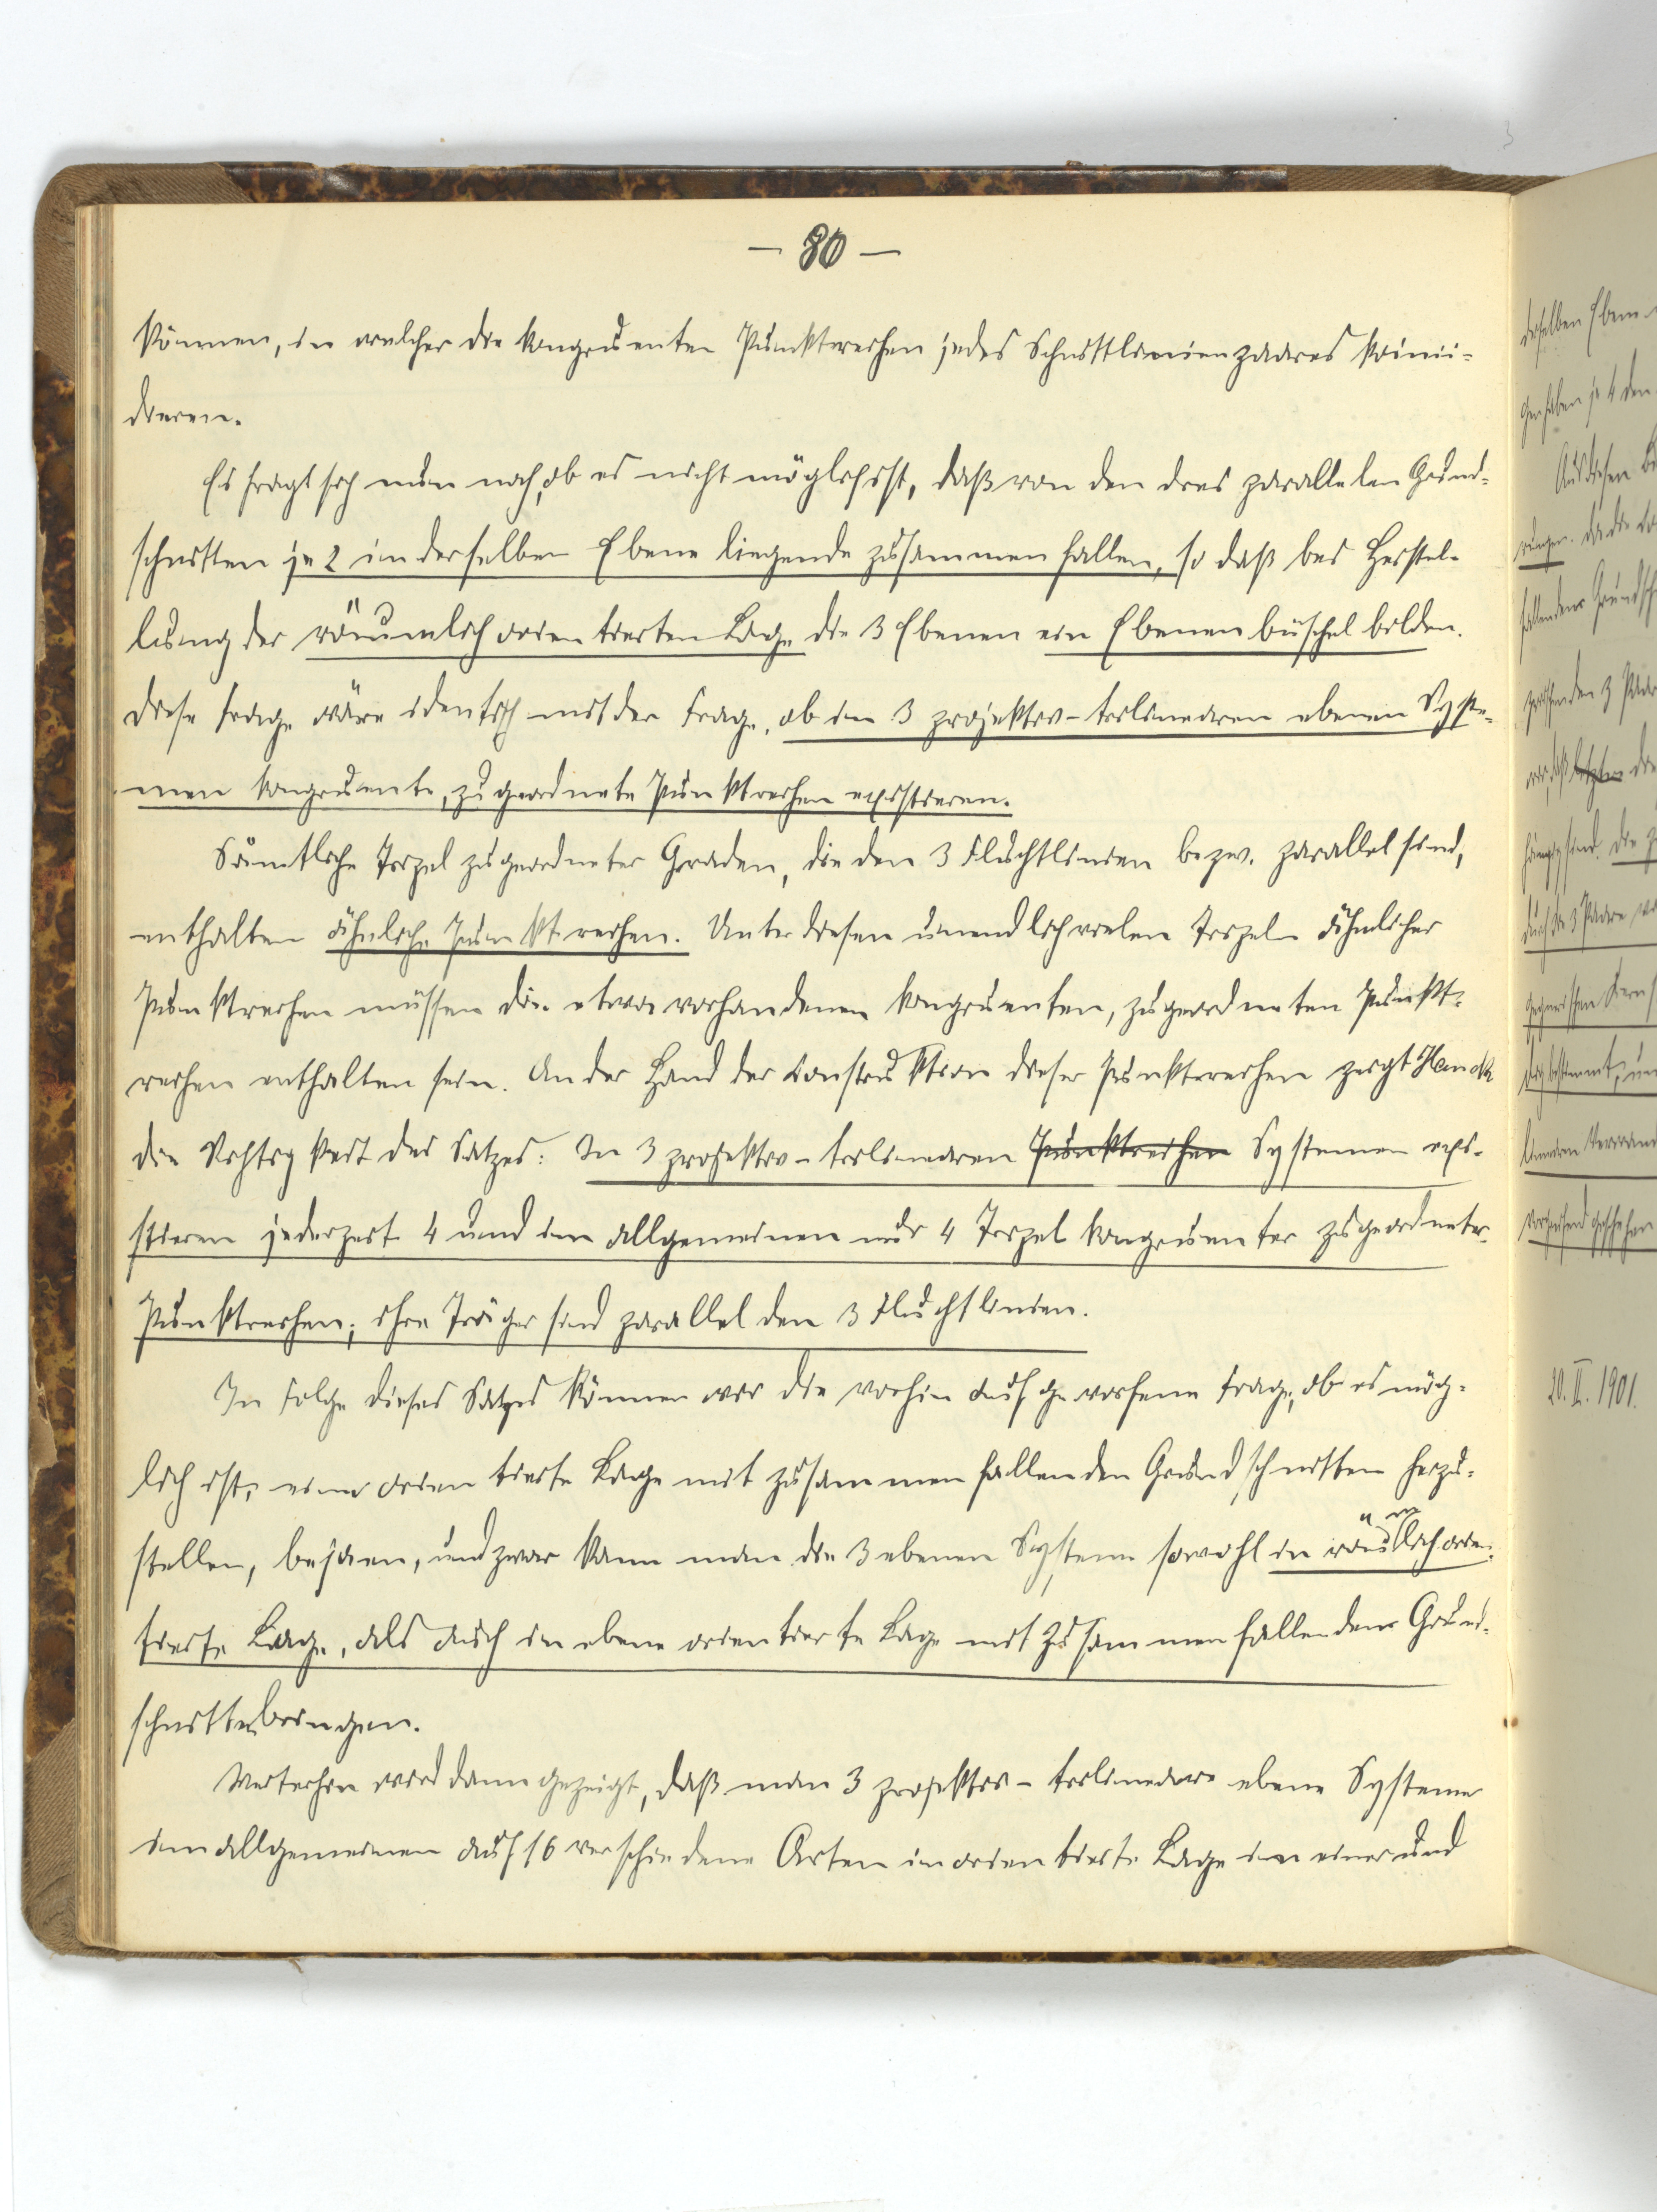 – 80 –
können, in welcher die kongruenten Punktreihen jedes Schnittlinienpaares koinzi-
dieren.
Es fragt sich nun noch, ob es nicht möglich ist, daß von den drei parallelen Grund-
schnitten je 2 in derselben Ebene liegende zusammenfallen, so daß bei Herstel-
lung der räumlich orientierten Lage die 3 Ebenen ein Ebenenbüschel bilden.
Diese Frage wäre identisch mit der Frage, ob in 3 projektiv-trilinearen ebenen Syste-
men kongruente, zugeordnete Punktreihen existieren.
Sämtliche Tripel zugeordneter Graden, die den 3 Fluchtlinien bezw. parallel sind,
enthalten ähnliche Punktreihen. Unter diesen unendlich vielen Tripeln ähnlicher
Punktreihen müssen die etwa vorhandenen kongruenten, zugeordneten Punkt-
reihen enthalten sein. An der Hand der Construktion dieser Punktreihen zeigt Hauck
die Richtigkeit des Satzes: In 3 projektiv-trilinearen Punktreihen Systemen exi-
stieren jederzeit 4 und im allgemeinen nur 4 Tripel kongruenter zugeordneter
Punktreihen; ihre Träger sind parallel den 3 Fluchtlinien.
In Folge dieses Satzes können wir die vorhin aufgeworfene Frage, ob es mög-
lich ist, eine orientierte Lage mit zusammenfallenden Grundschnitten herzu-
stellen, bejaen, und zwar kann man die 3 ebenen Systeme sowohl in räumlich orien-
tierte Lage, als auch in ebene orientierte Lage mit zusammenfallendem Grund-
schnitte bringen.
Weiterhin wird dann gezeigt, daß man 3 projektiv-trilineare ebene Systeme
im allgemeinen auf 16 verschiedene Arten in orientierte Lage in einer und
derselben Ebene
haben je 4 den
Aus diesen
rungen. Da die
fallendem Grundsch
zwischen den 3 Paar
daß letztere die
sind. Die
durch die 3 Paare
Kern
bestimmt, un
linearen Verwand
geschehen
20. II. 1901.